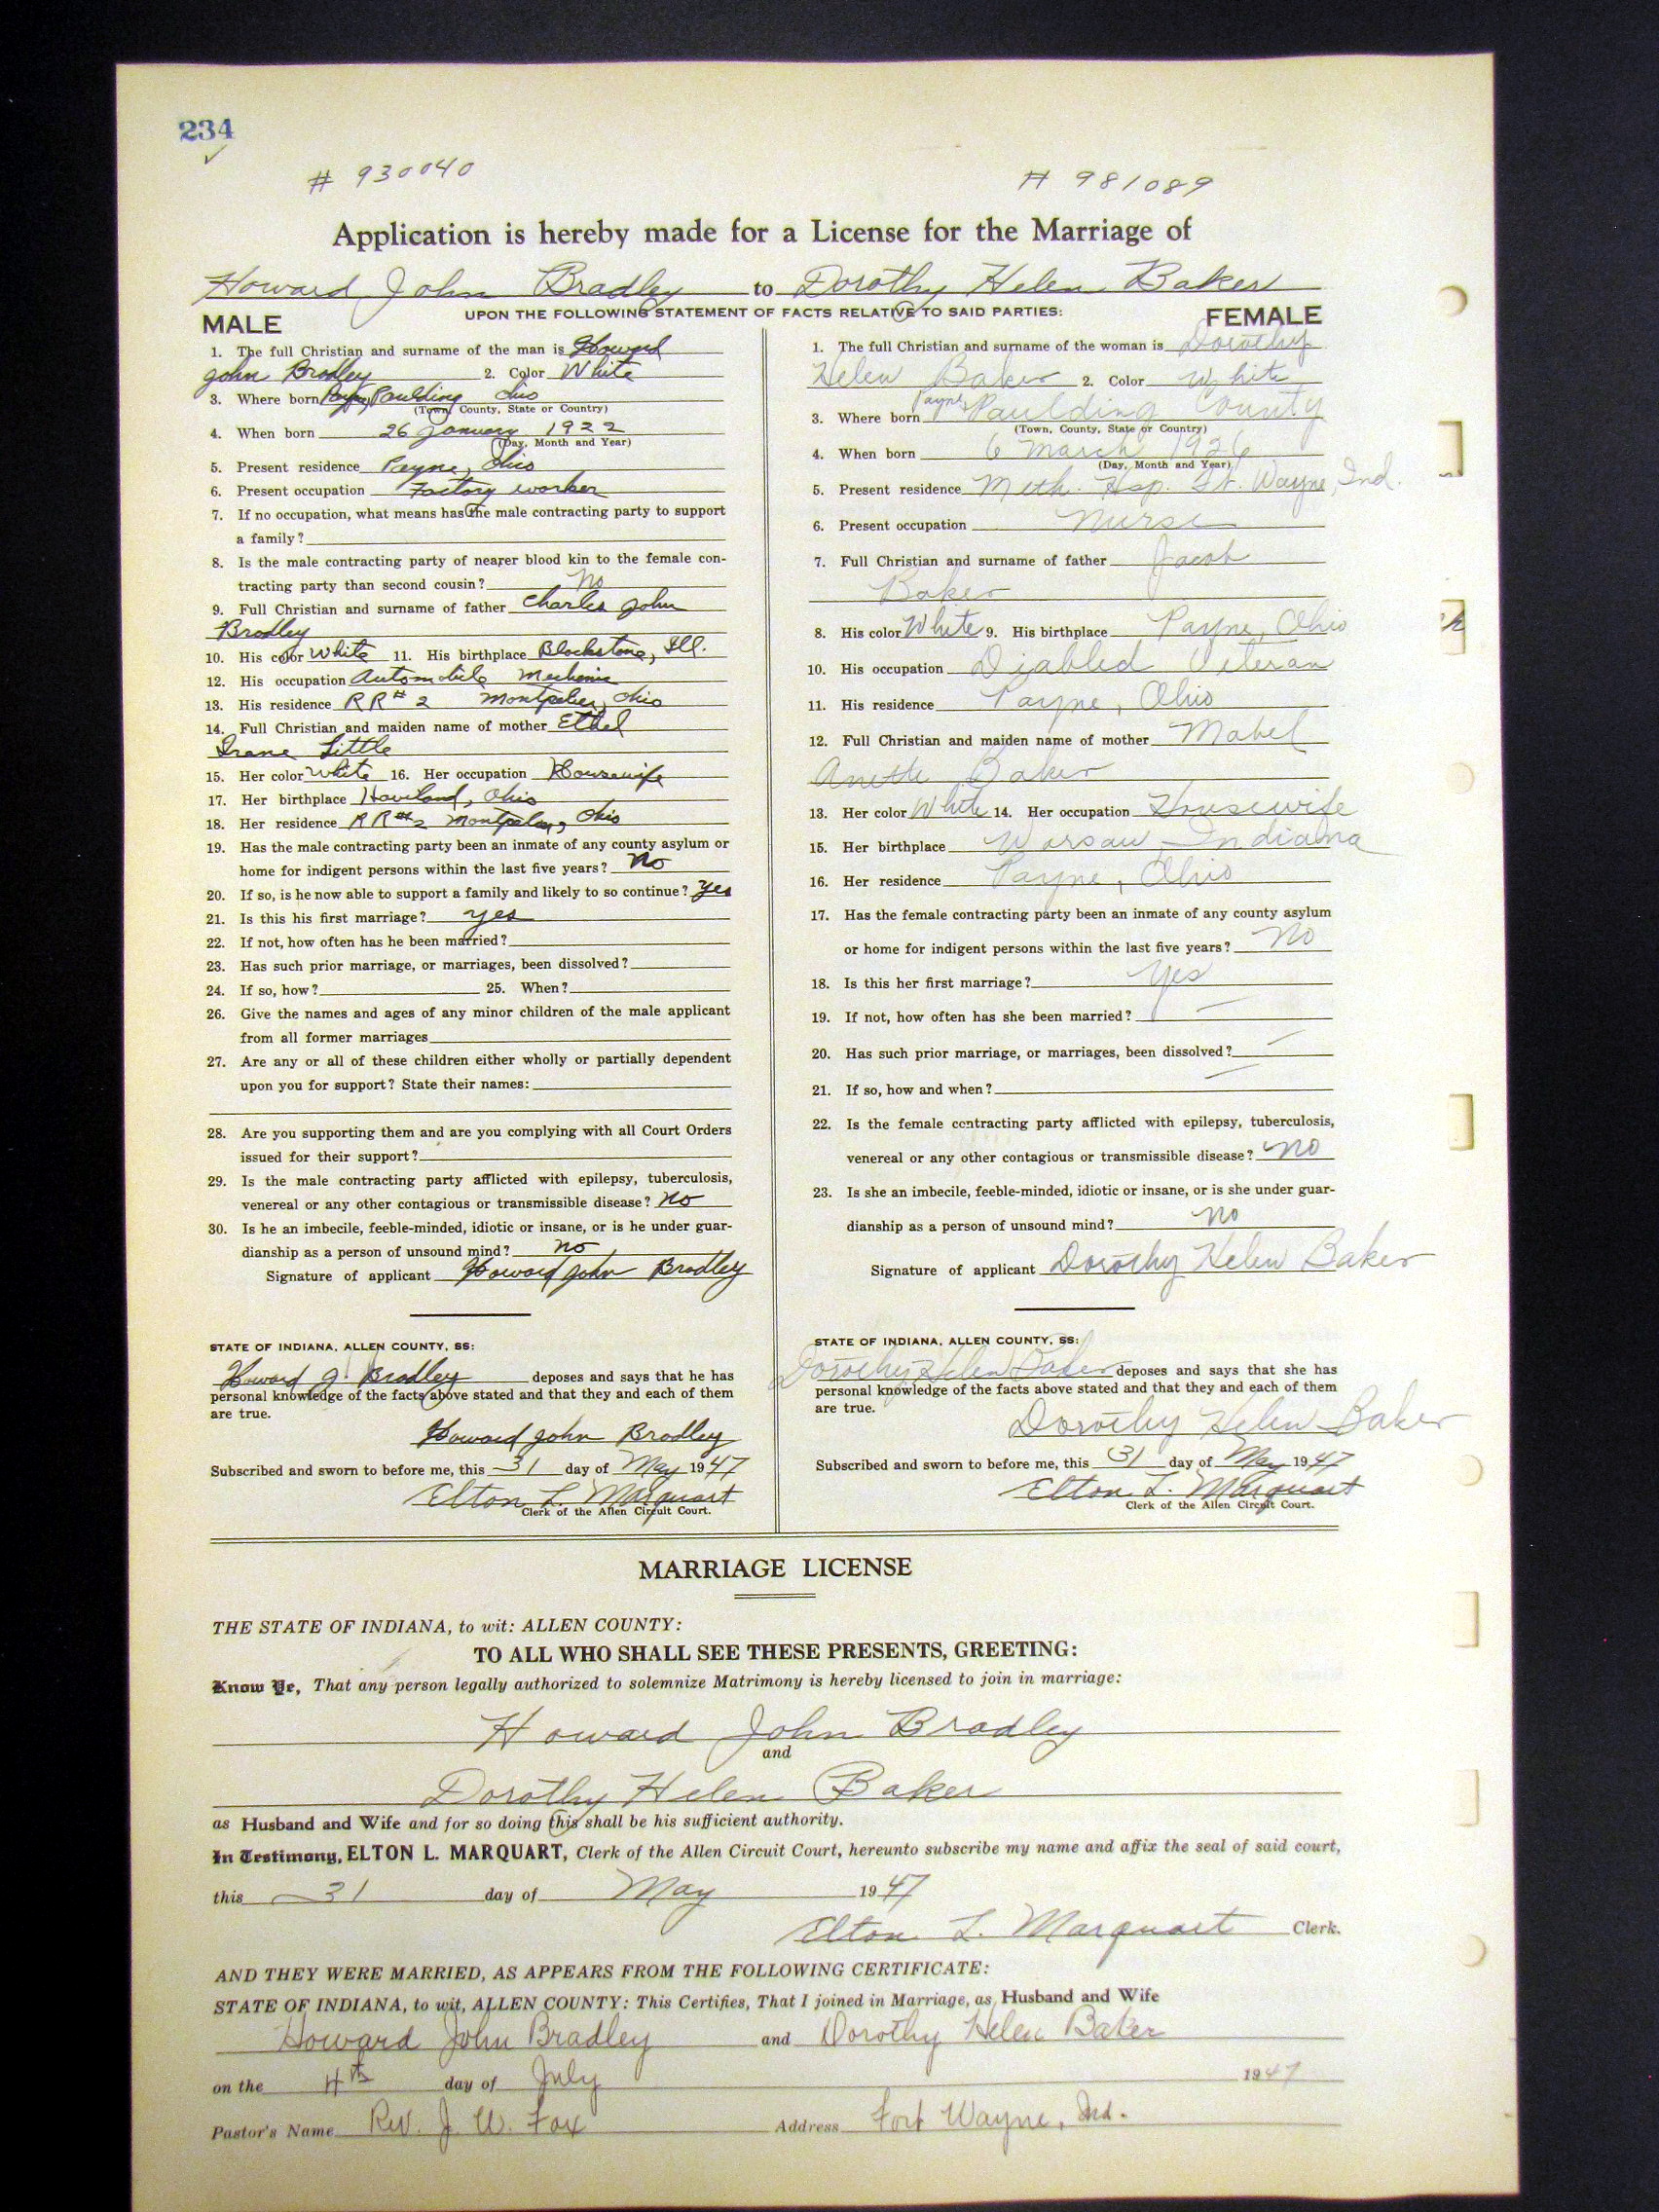 234
# 930040
# 981089
Application is hereby made for a License for the Marriage of
Howard John Bradley to Dorothy Helen Baker
UPON THE FOLLOWING STATEMENT OF FACTS RELATIVE TO SAID PARTIES:
MALE
1. The full Christian and surname of the man is Howard
John Bradley 2. Color White
3. Where born Payne, Paulding Ohio
(Town, County, State or Country)
4. When born 26 January 1922
(Day, Month and Year)
5. Present residence Payne, Ohio
6. Present occupation Factory worker
7. If no occupation, what means has the male contracting party to support
a family?
8. Is the male contracting party of nearer blood kin to the female con-
tracting party than second cousin? No
9. Full Christian and surname of father Charles John
Bradley
10. His color White 11. His birthplace Blackstone, Ill.
12. His occupation Automobile Mechanic
13. His residence RR# 2 Montpelier, Ohio
14. Full Christian and maiden name of mother Ethel
Irane Little
15. Her color White 16. Her occupation Housewife
17. Her birthplace Haviland, Ohio
18. Her residence RR#2 Montpelier, Ohio
19. Has the male contracting party been an inmate of any county asylum or
home for indigent persons within the last five years? No
20. If so, is he now able to support a family and likely to so continue? Yes
21. Is this his first marriage? yes
22. If not, how often has he been married?
23. Has such prior marriage, or marriages, been dissolved?
24. If so, how? 25. When?
26. Give the names and ages of any minor children of the male applicant
from all former marriages
27. Are any or all of these children either wholly or partially dependent
upon you for support? State their names:
28. Are you supporting them and are you complying with all Court Orders
issued for their support?
29. Is the male contracting party afflicted with epilepsy, tuberculosis,
venereal or any other contagious or transmissible disease? No
30. Is he an imbecile, feeble-minded, idiotic or insane, or is he under guar-
dianship as a person of unsound mind? no
Signature of applicant Howard John Bradley
STATE OF INDIANA, ALLEN COUNTY, SS:
Howard J. Bradley deposes and says that he has
personal knowledge of the facts above stated and that they and each of them
are true.
Howard John Bradley
Subscribed and sworn to before me, this 31 day of May 1947
Elton L. Marquart
Clerk of the Allen Circuit Court.
FEMALE
1. The full Christian and surname of the woman is Dorothy
Helen Baker 2. Color White
3. Where born Payne, Paulding County
(Town, County, State or Country)
4. When born 6 March 1926
(Day, Month and Year)
5. Present residence Meth. Hsp. Ft. Wayne, Ind.
6. Present occupation Nurse
7. Full Christian and surname of father Jacob
Baker
8. His color White 9. His birthplace Payne, Ohio
10. His occupation Diabled Veteran
11. His residence Payne, Ohio
12. Full Christian and maiden name of mother Mabel
Anette Baker
13. Her color White 14. Her occupation Housewife
15. Her birthplace Warsaw, Indiana
16. Her residence Payne, Ohio
17. Has the female contracting party been an inmate of any county asylum
or home for indigent persons within the last five years? No
18. Is this her first marriage? Yes
19. If not, how often has she been married? —
20. Has such prior marriage, or marriages, been dissolved? —
21. If so, how and when? —
22. Is the female contracting party afflicted with epilepsy, tuberculosis,
venereal or any other contagious or transmissible disease? No
23. Is she an imbecile, feeble-minded, idiotic or insane, or is she under guar-
dianship as a person of unsound mind? No
Signature of applicant Dorothy Helen Baker
STATE OF INDIANA, ALLEN COUNTY, SS:
Dorothy Helen Baker deposes and says that she has
personal knowledge of the facts above stated and that they and each of them
are true.
Dorothy Helen Baker
Subscribed and sworn to before me, this 31 day of May 1947
Elton L. Marquart
Clerk of the Allen Circuit Court.
MARRIAGE LICENSE
THE STATE OF INDIANA, to wit: ALLEN COUNTY:
TO ALL WHO SHALL SEE THESE PRESENTS, GREETING:
Know Ye, That any person legally authorized to solemnize Matrimony is hereby licensed to join in marriage:
Howard John Bradley
and
Dorothy Helen Baker
as Husband and Wife and for so doing this shall be his sufficient authority.
In Testimony, ELTON L. MARQUART, Clerk of the Allen Circuit Court, hereunto subscribe my name and affix the seal of said court,
this 31 day of May 1947
Elton L. Marquart Clerk.
AND THEY WERE MARRIED, AS APPEARS FROM THE FOLLOWING CERTIFICATE:
STATE OF INDIANA, to wit, ALLEN COUNTY: This Certifies, That I joined in Marriage, as Husband and Wife
Howard John Bradley and Dorothy Helen Baker
on the 4th day of July 1947
Pastor's Name Rev. J. W. Fox Address Fort Wayne, Ind.